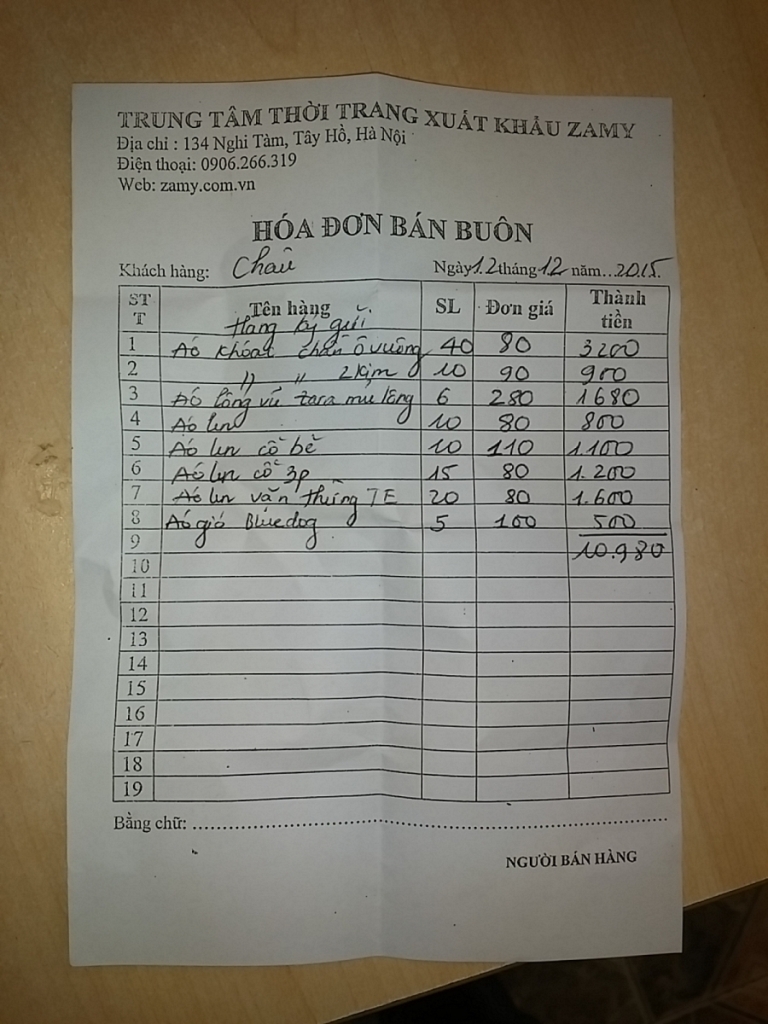 TRUNG TÂM THỜI TRANG XUẤT KHẨU ZAMY
Địa chỉ : 134 Nghi Tàm, Tây Hồ, Hà Nội
Điện thoại: 0906.266.319
Web: zamy.com.vn
HÓA ĐƠN BÁN BUÔN
Khách hàng: Châu Ngày 12 tháng 12 năm... 2015.
STT Tên hàng SL Đơn giá Thành tiền
Hàng ký gửi
1 Áo khoát chần ô vuông 40 80 3200
2 " " 2 kim 10 90 900
3 Áo lông vũ zara mũ lông 6 280 1680
4 Áo len 10 80 800
5 Áo len cổ bẻ 10 110 1100
6 Áo len cổ 3p 15 80 1.200
7 Áo len vặn thừng TE 20 80 1.600
8 Áo gió Bluedog 5 100 500
9 10.980
10
11
12
13
14
15
16
17
18
19
Bằng chữ: ................................................
NGƯỜI BÁN HÀNG